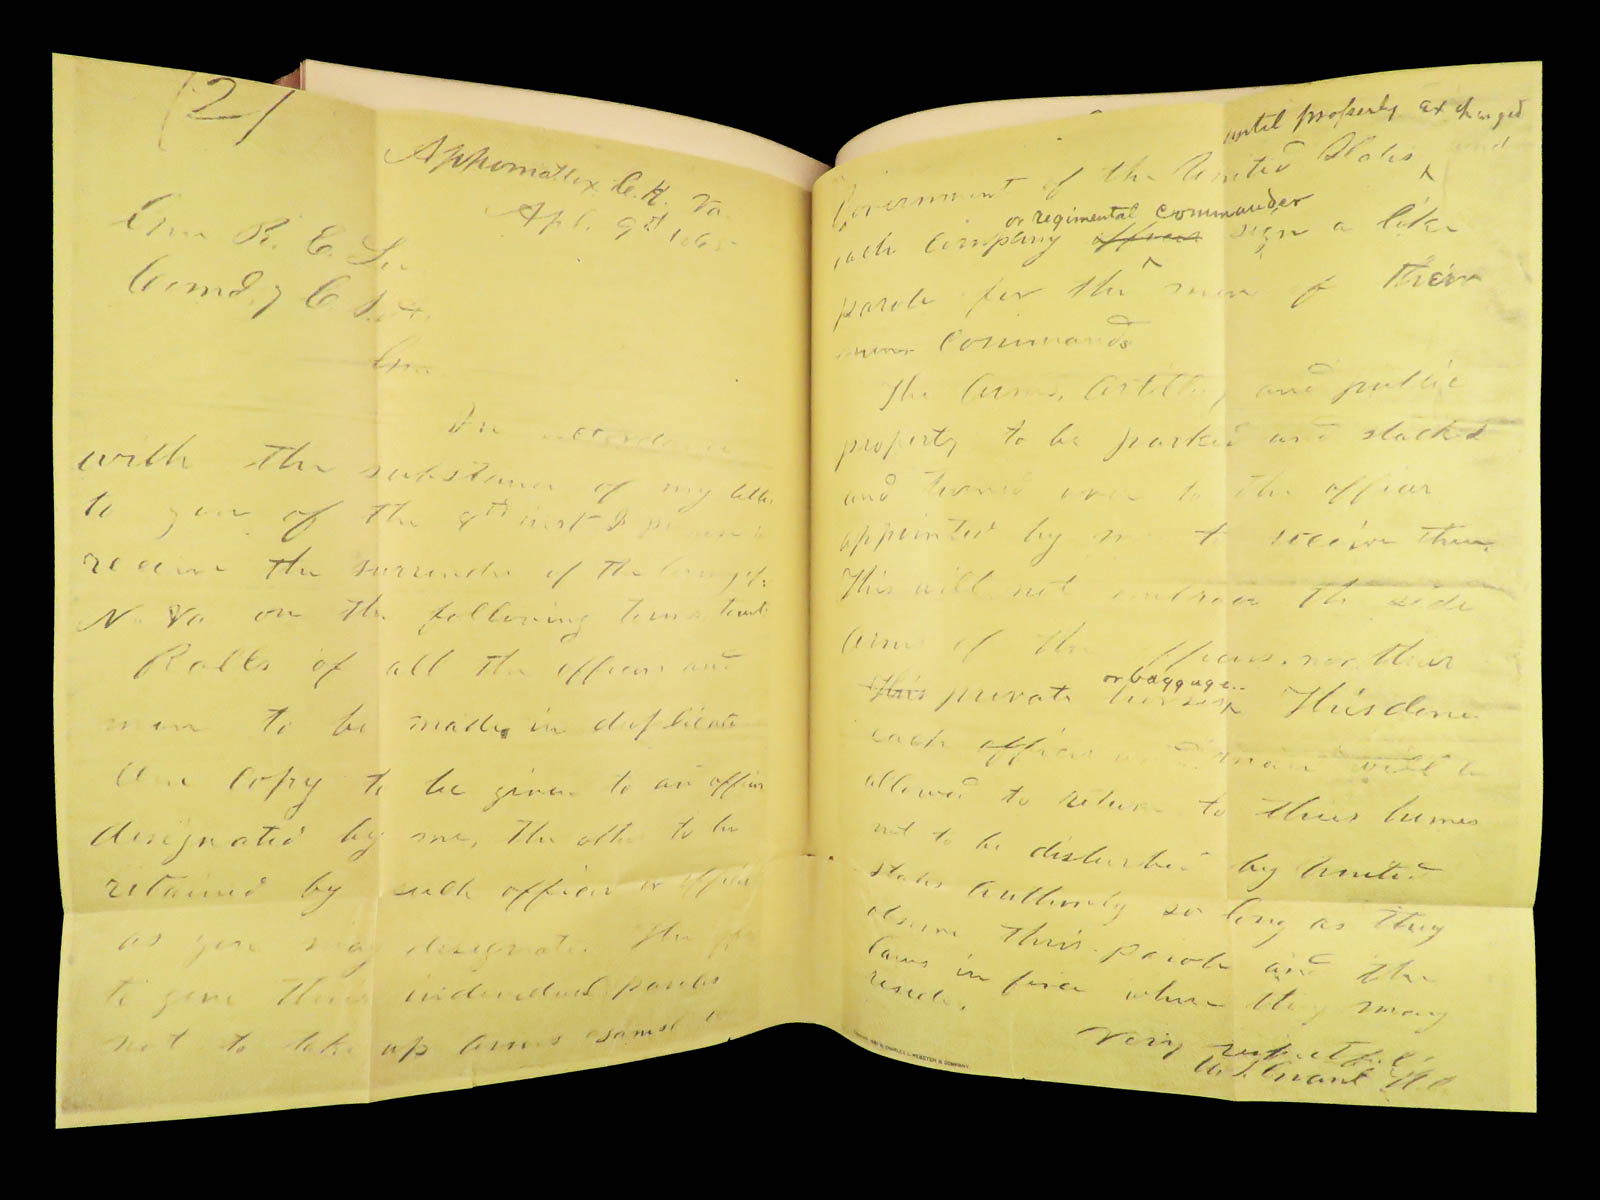 (2)
Appomattox C.H. Va.
Apl. 9th 1865
Gen R. E. Lee
Comd.g C.S.A.
Gen.
In accordance
with the substance of my letter
to you of the 8th inst. I propose to
receive the surrender of the Army of
N. Va on the following terms towit:
Rolls of all the officers and
men to be made in duplicate
One copy to be given to an officer
designated by me, the other to be
retained by such officer or officers
as you may designate. The officers
to give their individual paroles
not to take up arms against the
until properly exchanged
Government of the United States and
or regimental commander
each company officer sign a like
parole for the men of their
commands
The Arms, Artillery and public
property to be parked and stacked
and turned over to the officer
appointed by me to receive them.
This will not embrace the side
arms of the officers, nor their
or baggage.
this private horses This done
each officer and man will be
allowed to return to their homes
not to be disturbed by United
States Authority so long as they
observe their parole and the
laws in force where they may
reside.
Very respectfully
U.S. Grant Lt. Gn.
CHARLES L. WEBSTER & COMPANY.